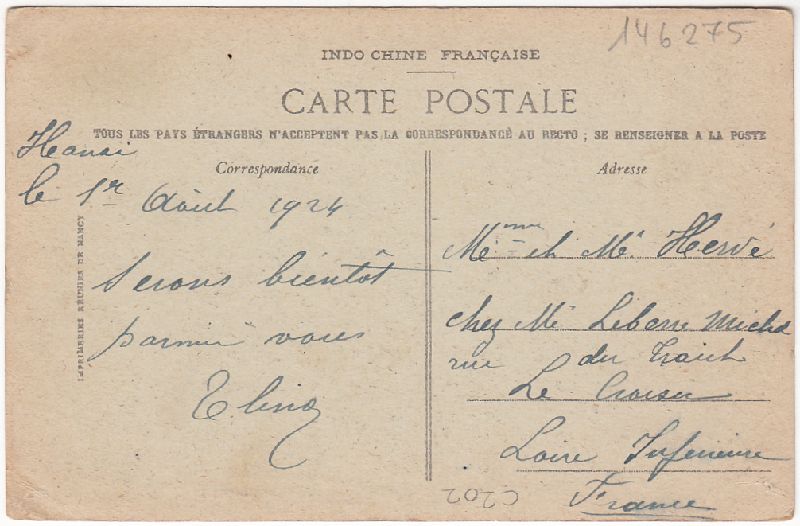 146275
INDO CHINE FRANÇAISE
CARTE POSTALE
TOUS LES PAYS ÉTRANGERS N'ACCEPTENT PAS LA CORRESPONDANCE AU RECTO ; SE RENSEIGNER A LA POSTE
Correspondance
Hanoi
le 1er Août 1924
Serons bientôt
parmi vous
IMPRIMERIES RÉUNIES DE NANCY
Adresse
Mme et Mr Hervé
chez Mr Michel
rue du Traict
Le Croisic
Loire Inférieure
France
C202